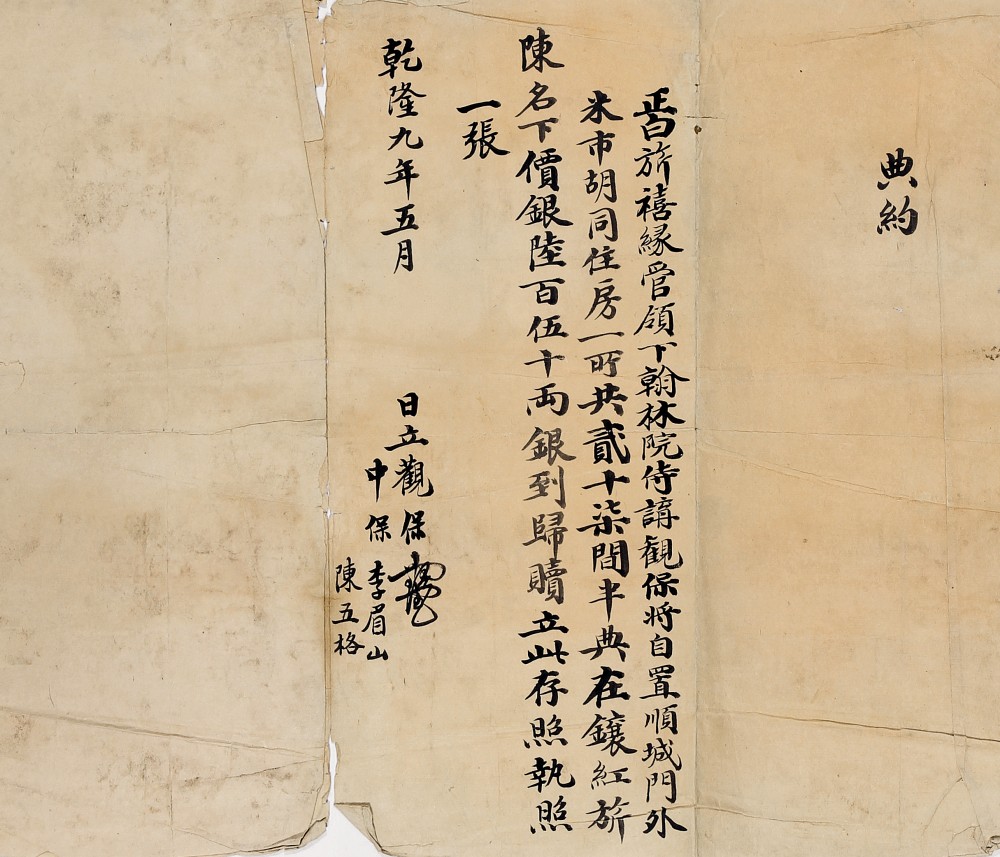 典約
正白旂禧緣管領下翰林院侍講觀保將自置順城門外
米市胡同住房一所共貳十柒間半典在鑲紅旂
陳名下價銀陸百伍十両銀到歸贖立此存照執照
一張
乾隆九年五月
日立觀保
中保 李眉山
陳五格